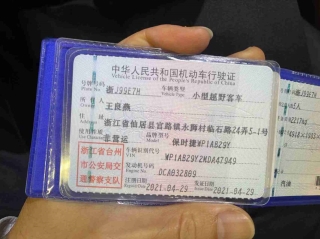 中华人民共和国机动车行驶证
Vehicle License of the People's Republic of China
号牌号码 浙J99E7H 车辆类型 小型越野客车
Plate No. Vehicle Type
所有人 王良燕
Owner
住址 浙江省仙居县官路镇永脚村临石路24弄5-1号
使用性质 非营运 品牌型号 保时捷WP1AB29Y
浙江省台州
市公安局交
通警察支队
车辆识别代号 WP1AB29Y2KDA47949
VIN
发动机号码 DCA032809
Engine No.
注册日期 2021-04-29 发证日期 2021-04-29